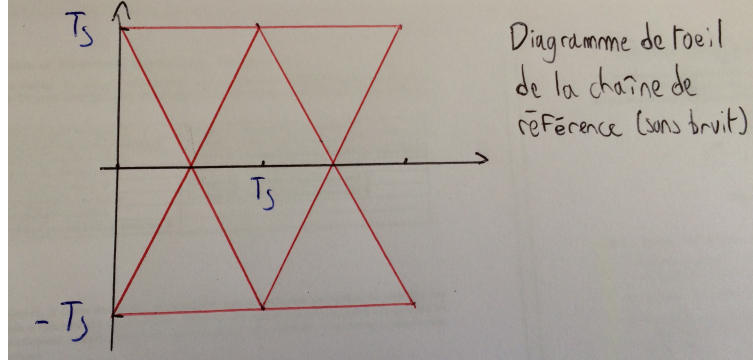 Ts
Diagramme de l'oeil
de la chaîne de
référence (sans bruit)
Ts
- Ts